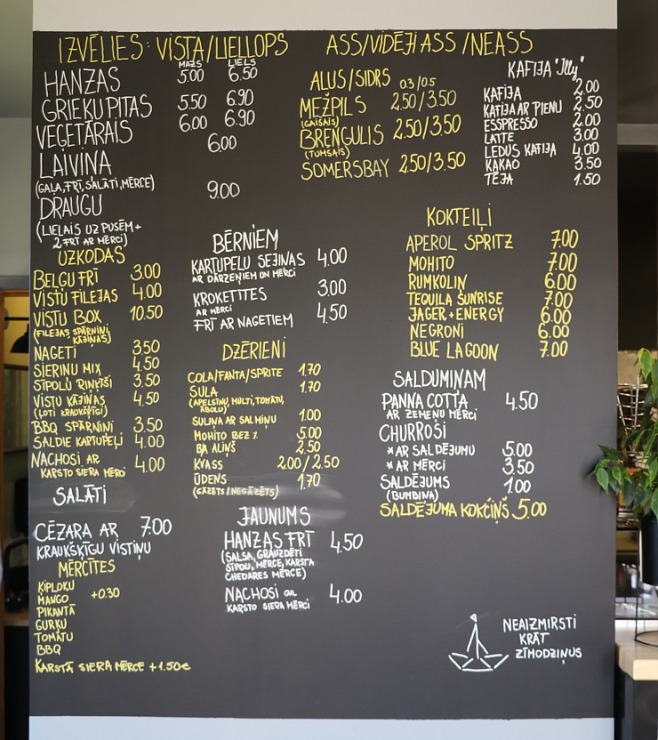 IZVĒLIES: VISTA/LIELLOPS ASS/VIDĒJI ASS/NEASS
MAZS LIELS
HANZAS 5.00 6.50
GRIEĶU PITAS 5.50 6.90
VEGETĀRAIS 6.00 6.90
LAIVIŅA 6.00
(GAĻA, FRĪ, SALĀTI, MĒRCE)
DRAUGU 9.00
(LIELAIS UZ PUSĒM +
2 FRĪ AR MĒRCI)
UZKODAS
BEĻĢU FRĪ 3.00
VISTU FILEJAS 4.00
VISTU BOX 10.50
(FILEJAS, SPĀRNIŅI,
KĀJIŅAS)
NAGETI 3.50
SIERIŅU MIX 4.50
SĪPOLU RIŅĶĪŠI 3.50
VISTU KĀJIŅAS 4.50
(ĻOTI KRAUKŠĶĪGI)
BBQ SPĀRNIŅI 3.50
SALDIE KARTUPEĻI 4.00
NACHOSI AR 4.00
KARSTO SIERA MĒRCI
SALĀTI
CĒZARA AR 7.00
KRAUKŠĶĪGU VISTIŅU
MĒRCĪTES
ĶIPLOKU
MANGO +0.30
PIKANTĀ
GURĶU
TOMĀTU
BBQ
KARSTĀ SIERA MĒRCE +1.50€
BĒRNIEM
KARTUPEĻU SEJIŅAS 4.00
AR DĀRZEŅIEM UN MĒRCI
KROKETĪTES 3.00
AR MĒRCI
FRĪ AR NAGETIEM 4.50
DZĒRIENI
COLA/FANTA/SPRITE 1.70
SULA 1.70
(APELSĪNU, MULTI, TOMĀTU,
ĀBOLU)
SULIŅA AR SALMIŅU 1.00
MOHITO BEZ % 5.00
B/A ALIŅŠ 2.50
KVASS 2.00/2.50
ŪDENS 1.70
(GĀZĒTS/NEGĀZĒTS)
JAUNUMS
HANZAS FRĪ 4.50
(SALSA, GRAUZDĒTI
SĪPOLI, MĒRCE, KARSTA
CHEDARES MĒRCE)
NACHOSI AR 4.00
KARSTO SIERA MĒRCI
ALUS/SIDRS 03/05
MEŽPILS 2.50/3.50
(GAIŠAIS)
BRENGULIS 2.50/3.50
(TUMŠAIS)
SOMERSBAY 2.50/3.50
KAFIJA "Illy"
KAFIJA 2.00
KAFIJA AR PIENU 2.50
ESSPRESSO 2.00
LATTE 3.00
LEDUS KAFIJA 4.00
KAKAO 3.50
TĒJA 1.50
KOKTEIĻI
APEROL SPRITZ 7.00
MOHITO 7.00
RUMKOLIN 6.00
TEQUILA SUNRISE 7.00
JÄGER+ENERGY 6.00
NEGRONI 6.00
BLUE LAGOON 7.00
SALDUMIŅAM
PANNA COTTA 4.50
AR ZEMEŅU MĒRCI
CHURROSI
*AR SALDĒJUMU 5.00
*AR MĒRCI 3.50
SALDĒJUMS 1.00
(BUMBIŅA)
SALDĒJUMA KOKČIŅŠ 5.00
NEAIZMIRSTI
KRĀT
ZĪMODZIŅUS